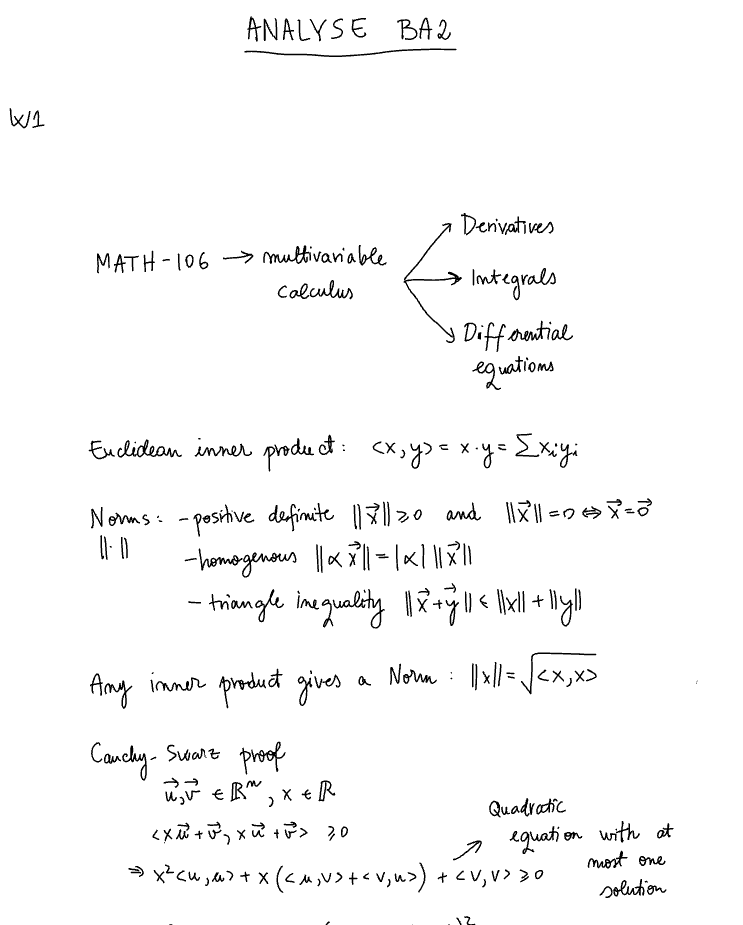 ANALYSE BA2
W1
MATH-106 → multivariable calculus
Derivatives
Integrals
Differential equations
Euclidean inner product: <x,y> = x·y = ∑xᵢyᵢ
Norms: - positive definite ||x⃗|| ⩾ 0 and ||x⃗|| = 0 ⇔ x⃗ = 0⃗
||·|| - homogenous ||α x⃗|| = |α| ||x⃗||
- triangle inequality ||x⃗ + y⃗|| ⩽ ||x|| + ||y||
Any inner product gives a Norm : ||x|| = √<x,x>
Cauchy-Swarz proof
u⃗,v⃗ ∈ ℝⁿ, x ∈ ℝ
<xu⃗ + v⃗, xu⃗ + v⃗> ⩾ 0
⇒ x²<u,u> + x(<u,v> + <v,u>) + <v,v> ⩾ 0
Quadratic
equation with at
most one
solution